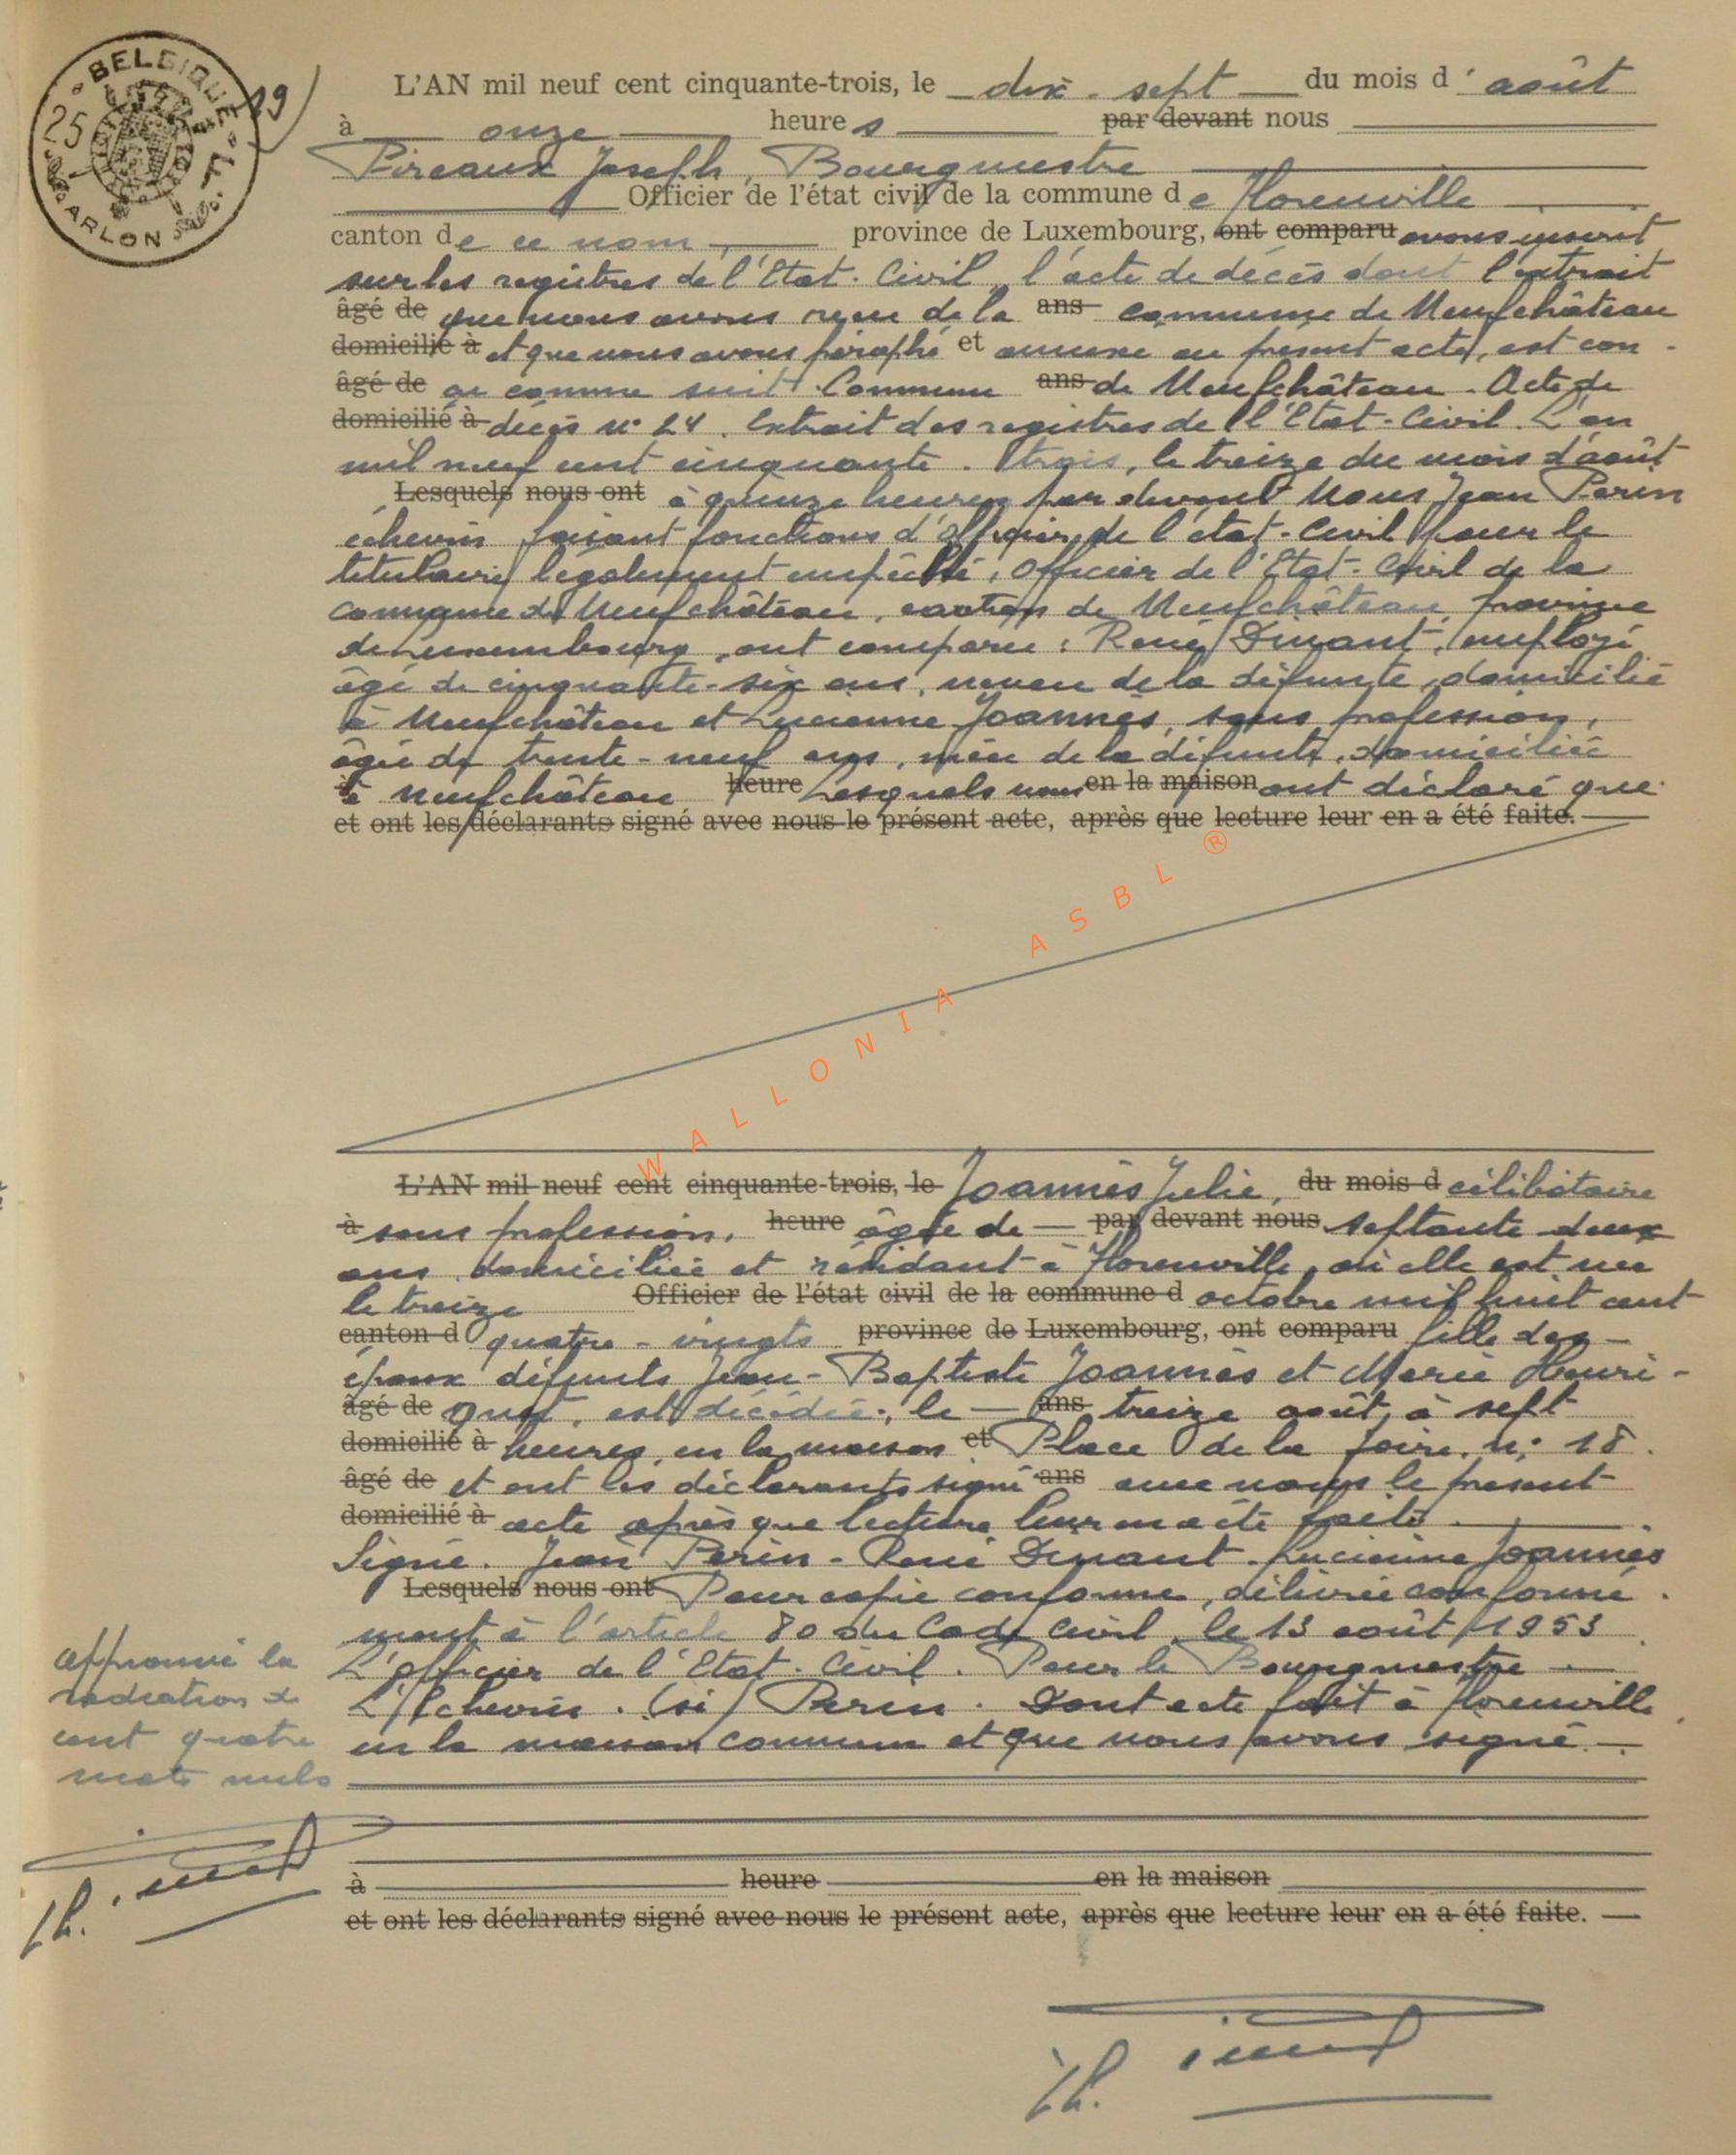 BELGIQUE
25 F
ARLON
29)
L'AN mil neuf cent cinquante-trois, le dix-sept du mois d'août
à onze heures par devant nous
Pireaux Joseph, Bourgmestre
Officier de l'état civil de la commune de Florenville
canton de ce nom, province de Luxembourg, ont comparu avons inscrit
sur les registres de l'Etat-Civil, l'acte de décès dont l'extrait
âgé de que nous avons reçu de la ans commune de Neufchâteau
domicilié à et que nous avons paraphé et annexé au présent acte, est con-
âgé de çu comme suit: Commune ans de Neufchâteau - Acte de
domicilié à décès n° 24. Extrait des registres de l'Etat-Civil. L'an
mil neuf cent cinquante-trois, le treize du mois d'août
Lesquels nous ont à quinze heures par devant Nous Jean Perin
échevin faisant fonctions d'officier de l'état-Civil pour le
titulaire légalement empêché, Officier de l'Etat-Civil de la
commune de Neufchâteau, canton de Neufchâteau, province
de Luxembourg, ont comparu: René Dinant, employé
âgé de cinquante-six ans, neveu de la défunte, domicilié
à Neufchâteau et Lucienne Joannès, sans profession,
âgée de trente-neuf ans, nièce de la défunte, domiciliée
à Neufchâteau heure Lesquels nous en la maison ont déclaré que
et ont les déclarants signé avec nous le présent acte, après que lecture leur en a été faite.
WALLONIA ASBL ®
L'AN mil neuf cent cinquante-trois, le Joannès Julie, du mois d célibataire
à sans profession, heure âgée de par devant nous septante deux
ans, domiciliée et résidant à Florenville, où elle est née
le treize Officier de l'état civil de la commune d octobre mil huit cent
canton d quatre-vingts province de Luxembourg, ont comparu fille des
époux défunts Jean-Baptiste Joannès et Marie Henri-
âgé de quet, est décédée, le ans treize août, à sept
domicilié à heures, en la maison et Place de la foire, n° 18.
âgé de et ont les déclarants signé ans avec nous le présent
domicilié à acte après que lecture leur en a été faite.
Signé. Jean Perin - René Dinant - Lucienne Joannès
Lesquels nous ont Pour copie conforme, délivrée conformé-
ment à l'article 80 du Code Civil, le 13 août 1953
L'officier de l'Etat-Civil. Pour le Bourgmestre
L'Echevin. (sé) Perin. Dont acte fait à Florenville
en la maison commune et que nous avons signé.
approuvé la
radiation de
cent quatre
mots nuls
à heure en la maison
et ont les déclarants signé avec nous le présent acte, après que lecture leur en a été faite.